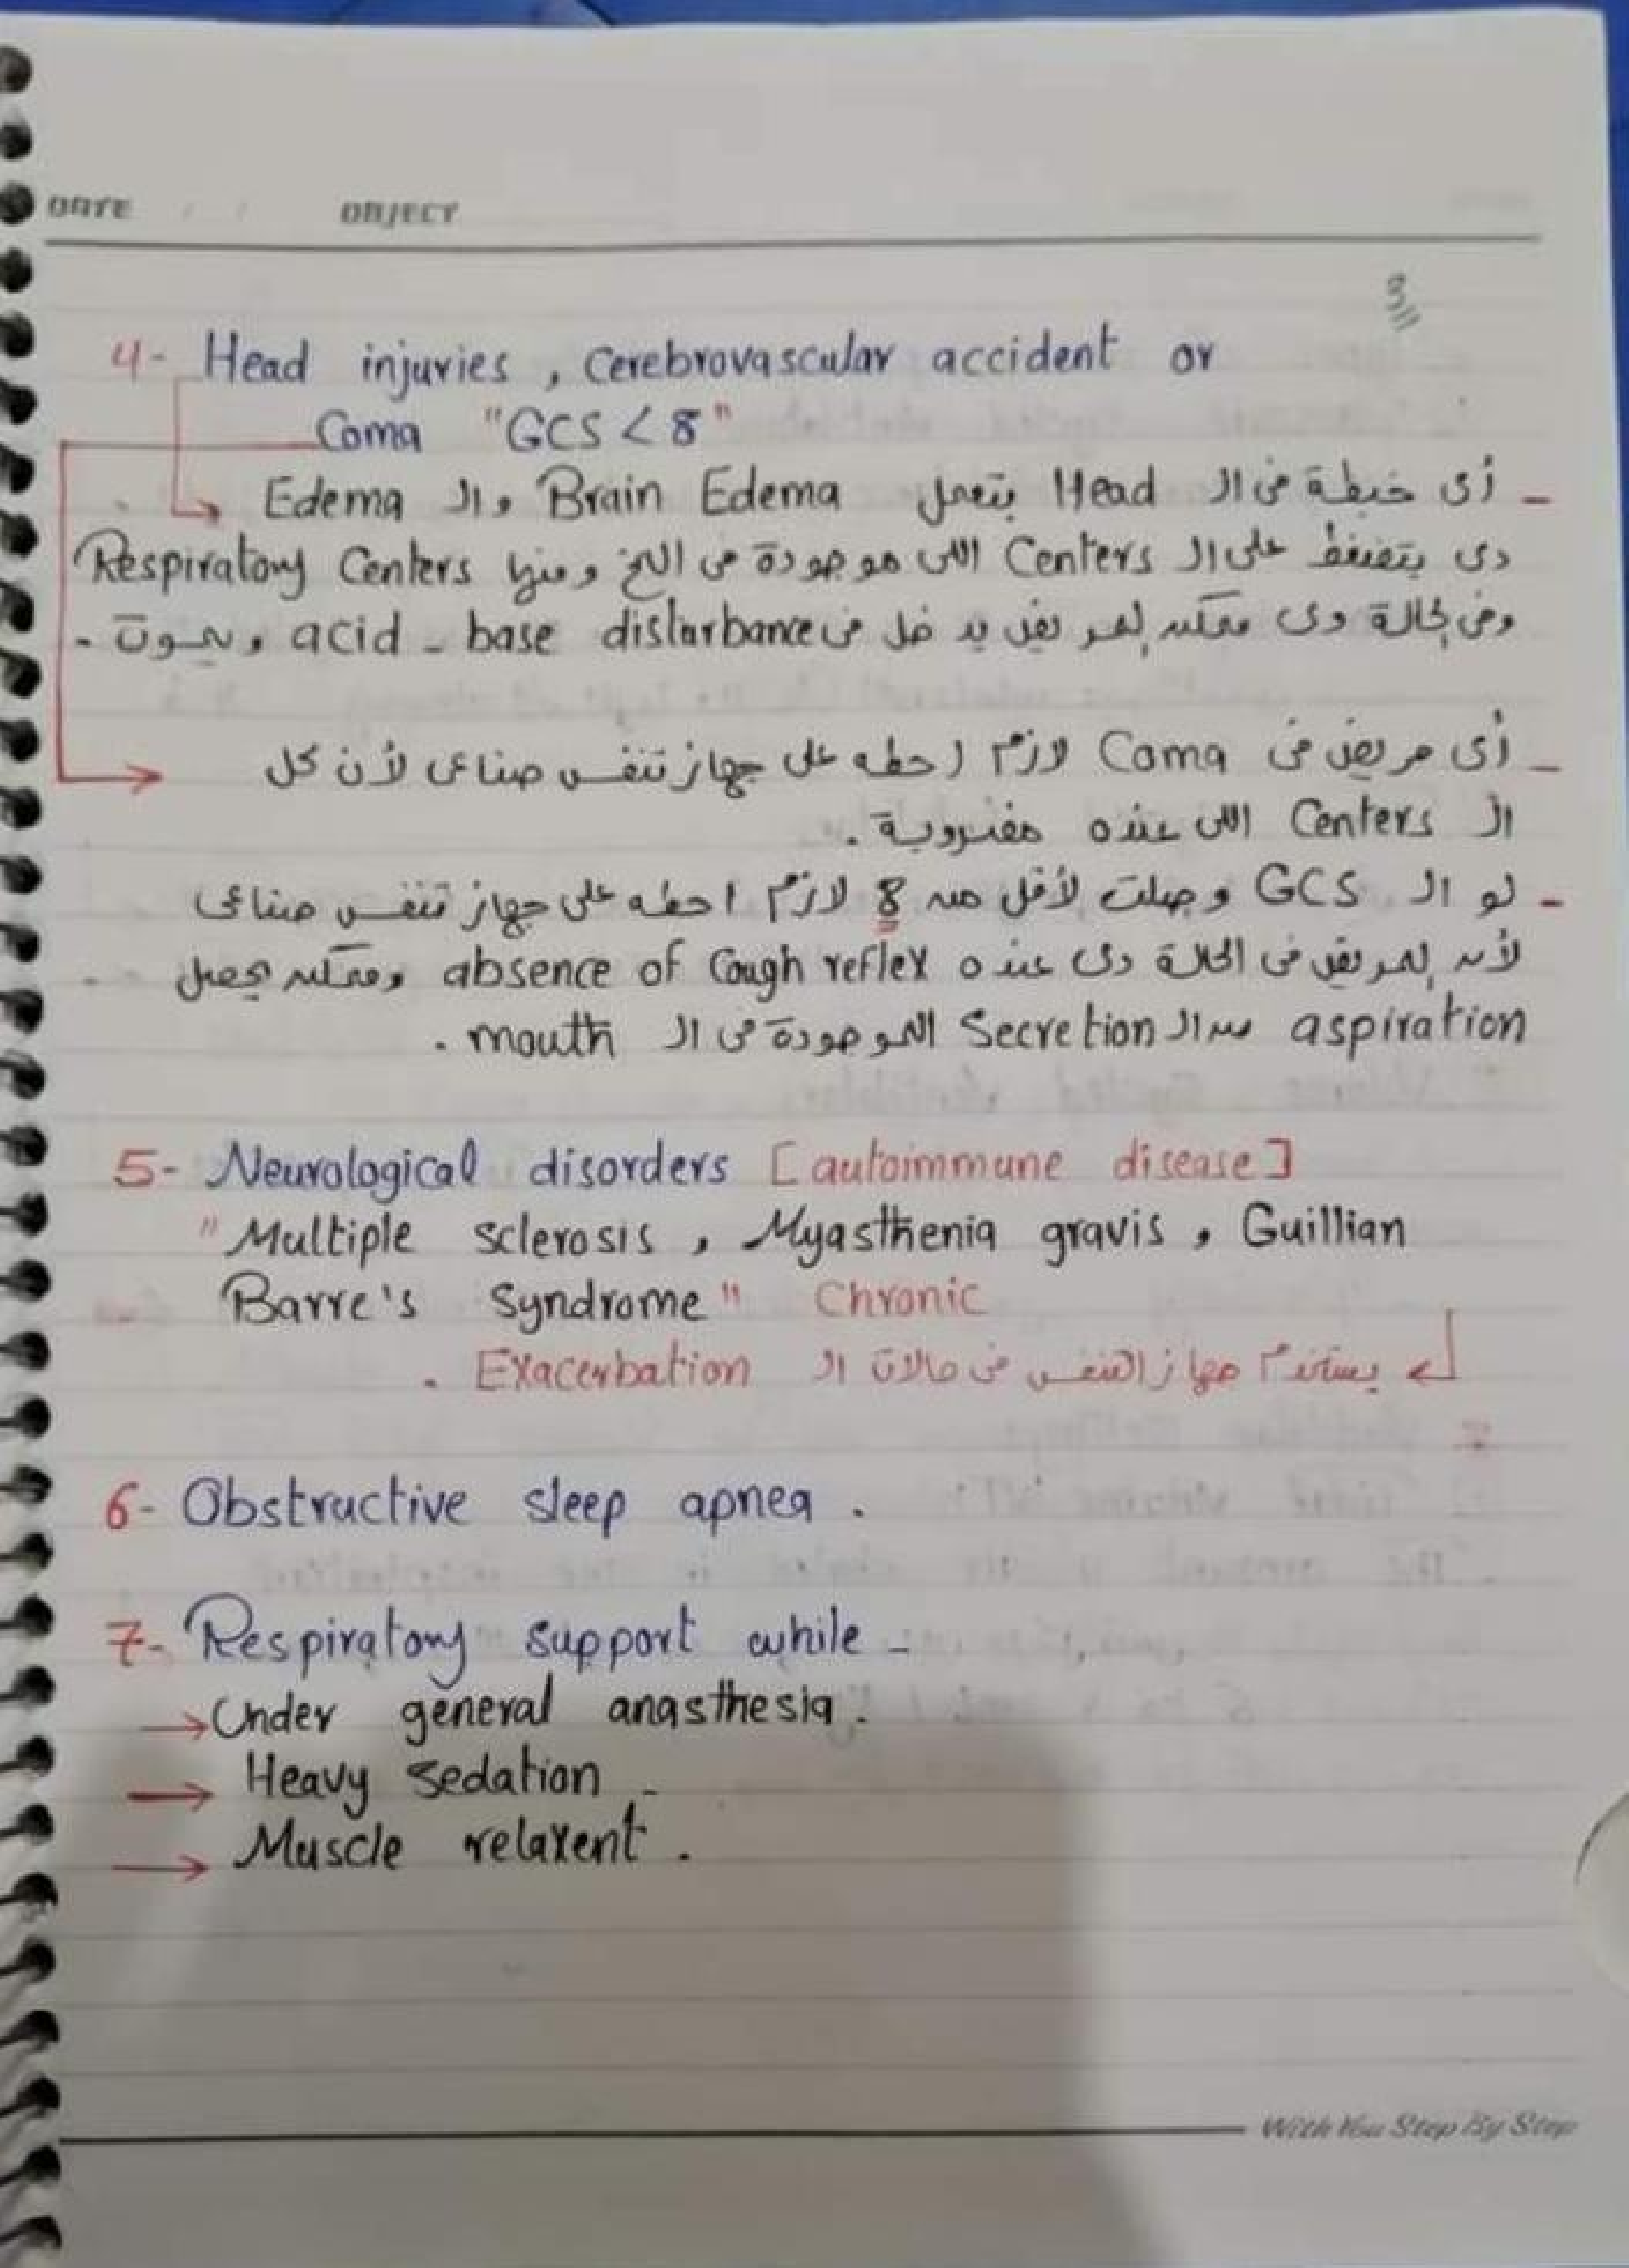 DATE / / OBJECT
3
4- Head injuries , Cerebrovascular accident or
Coma "GCS < 8"
- أى خبطة فى الـ Head بتعمل Brain Edema والـ Edema
دى بتضغط على الـ Centers اللى موجودة فى المخ ومنها Respiratory Centers
وفى الحالة دى ممكن المريض يدخل فى acid - base disturbance ويموت .
- أى مريض فى Coma لازم احطه على جهاز تنفس صناعى لأن كل
الـ Centers اللى عنده مضروبة .
- لو الـ GCS وصلت لأقل من 8 لازم احطه على جهاز تنفس صناعى
لأن المريض فى الحالة دى عنده absence of Cough reflex وممكن يحصل
aspiration من الـ Secretion الموجودة فى الـ mouth .
5- Neurological disorders [autoimmune disease]
"Multiple sclerosis , Myasthenia gravis , Guillian
Barre's Syndrome" Chronic
يستخدم جهاز التنفس فى حالات الـ Exacerbation .
6- Obstructive sleep apnea .
7- Respiratory support while -
→ Under general anasthesia .
→ Heavy sedation -
→ Muscle relaxent .
With You Step By Step